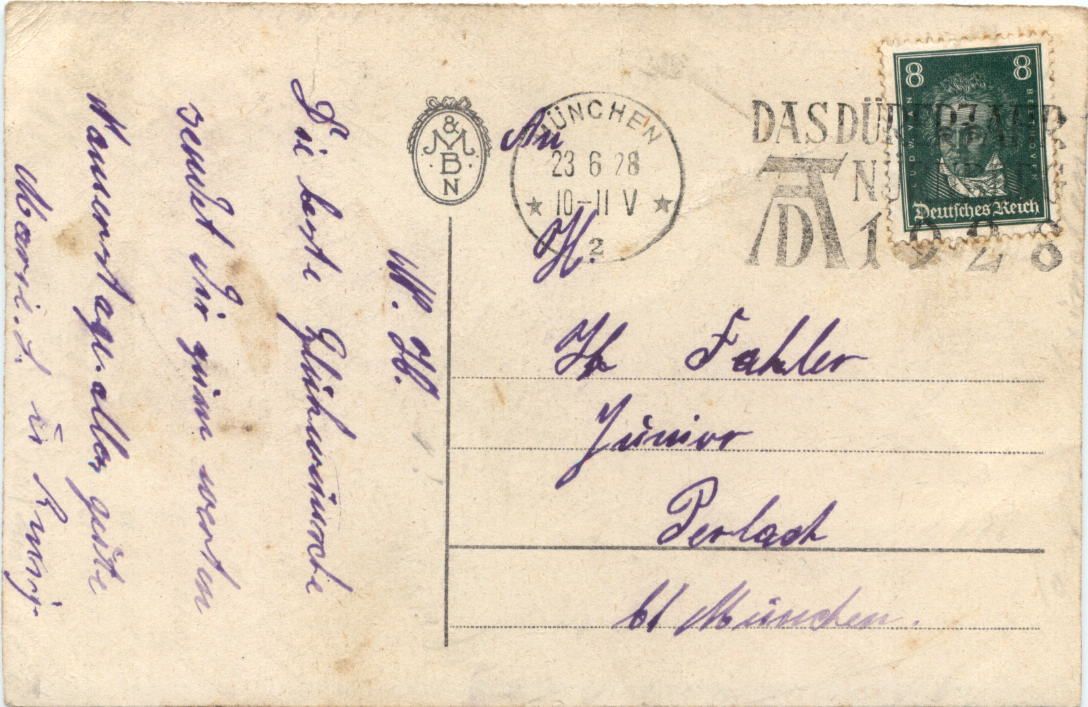 W. H.
Die beste Glückwünsche
sendet Dir zum werten
Namenstage alles gute
& M B N
MÜNCHEN
23 6 28
10-11 V
2
DAS DÜRERJAHR
NÜRNBERG
1928
8 8
LUDW. V. BEETHOVEN
Deutsches Reich
An
H.
Fahler
Junior
Perlach
b/ München.